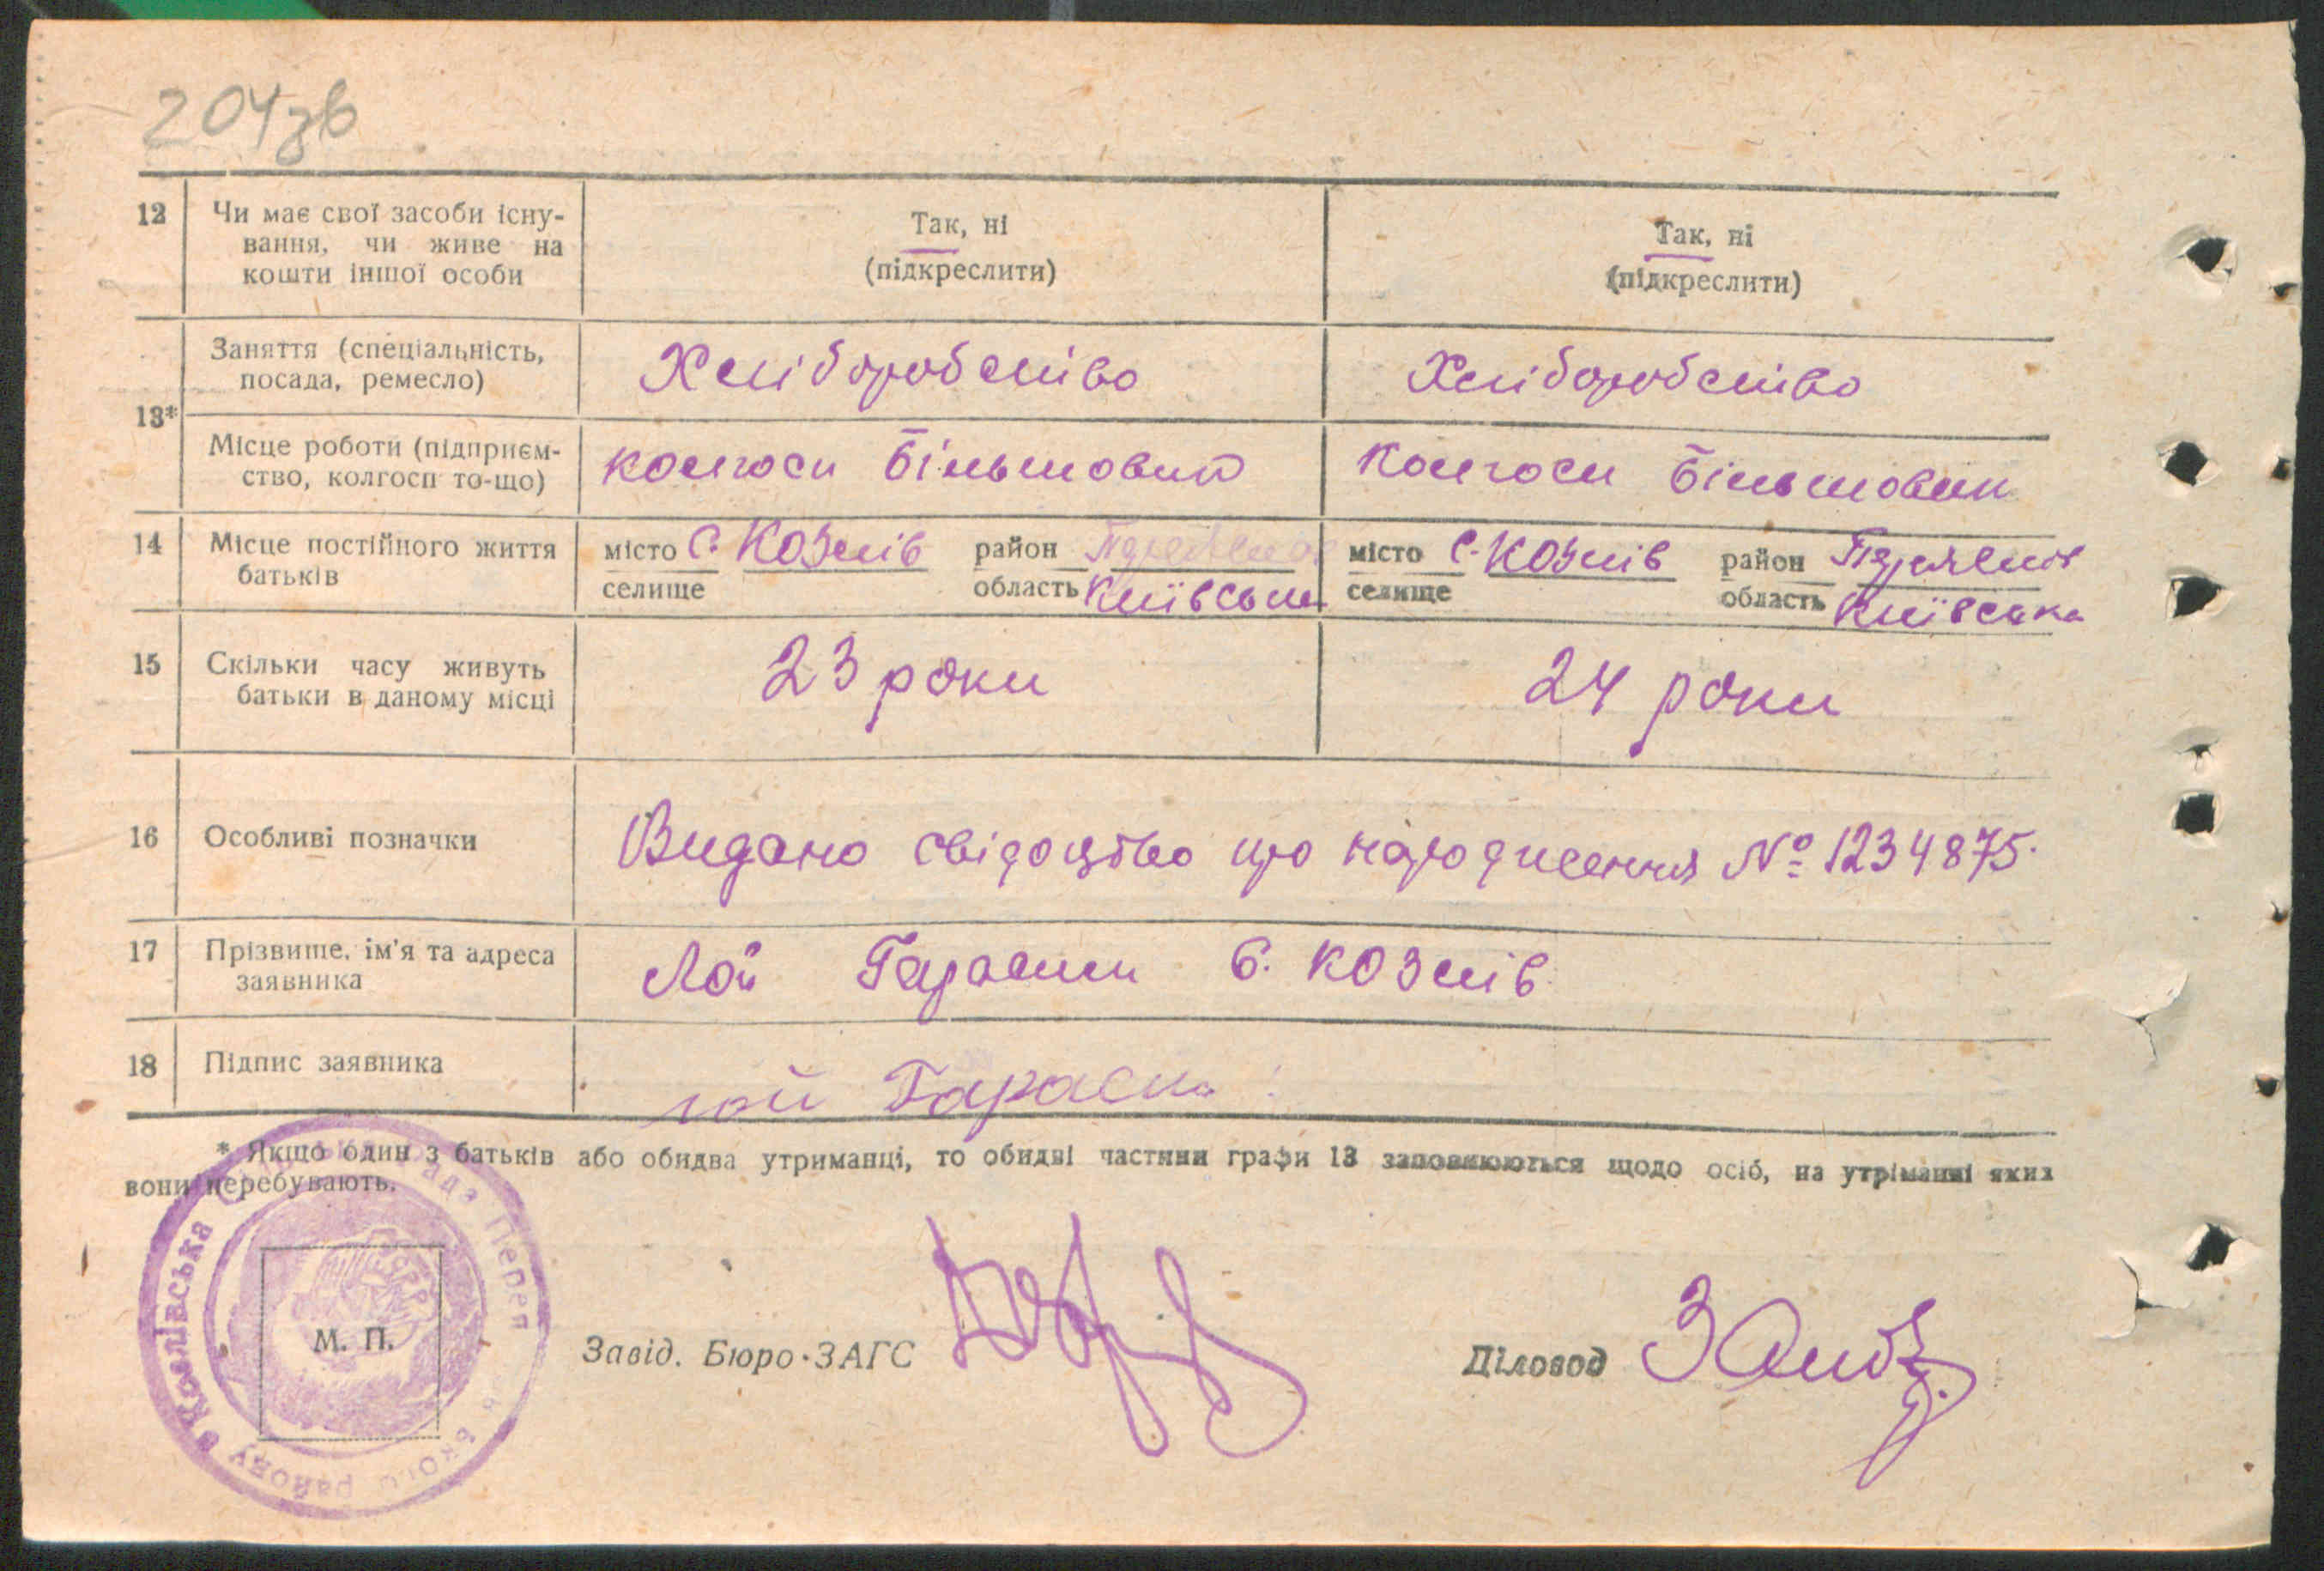 204зв
12 Чи має свої засоби існу-
вання, чи живе на
кошти іншої особи
Так, ні
(підкреслити)
Так, ні
(підкреслити)
13*
Заняття (спеціальність,
посада, ремесло)
Хліборобство
Хліборобство
Місце роботи (підприєм-
ство, колгосп то-що)
колгосп Більшовик
Колгосп Більшовик
14 Місце постійного життя
батьків
місто с. Козлів район
селище область Київська
місто с. Козлів район
селище область Київська
15 Скільки часу живуть
батьки в даному місці
23 роки
24 роки
16 Особливі позначки
Видано свідоцтво про народження № 1234875.
17 Прізвище, ім'я та адреса
заявника
Лой Тарас с. Козлів
18 Підпис заявника
лой Тарас
* Якщо один з батьків або обидва утриманці, то обидві частини графи 13 заповнюються щодо осіб, на утріманні яких
вони перебувають.
Козлівська рада Переяслівського району
М. П.
Завід. Бюро-ЗАГС
Діловод